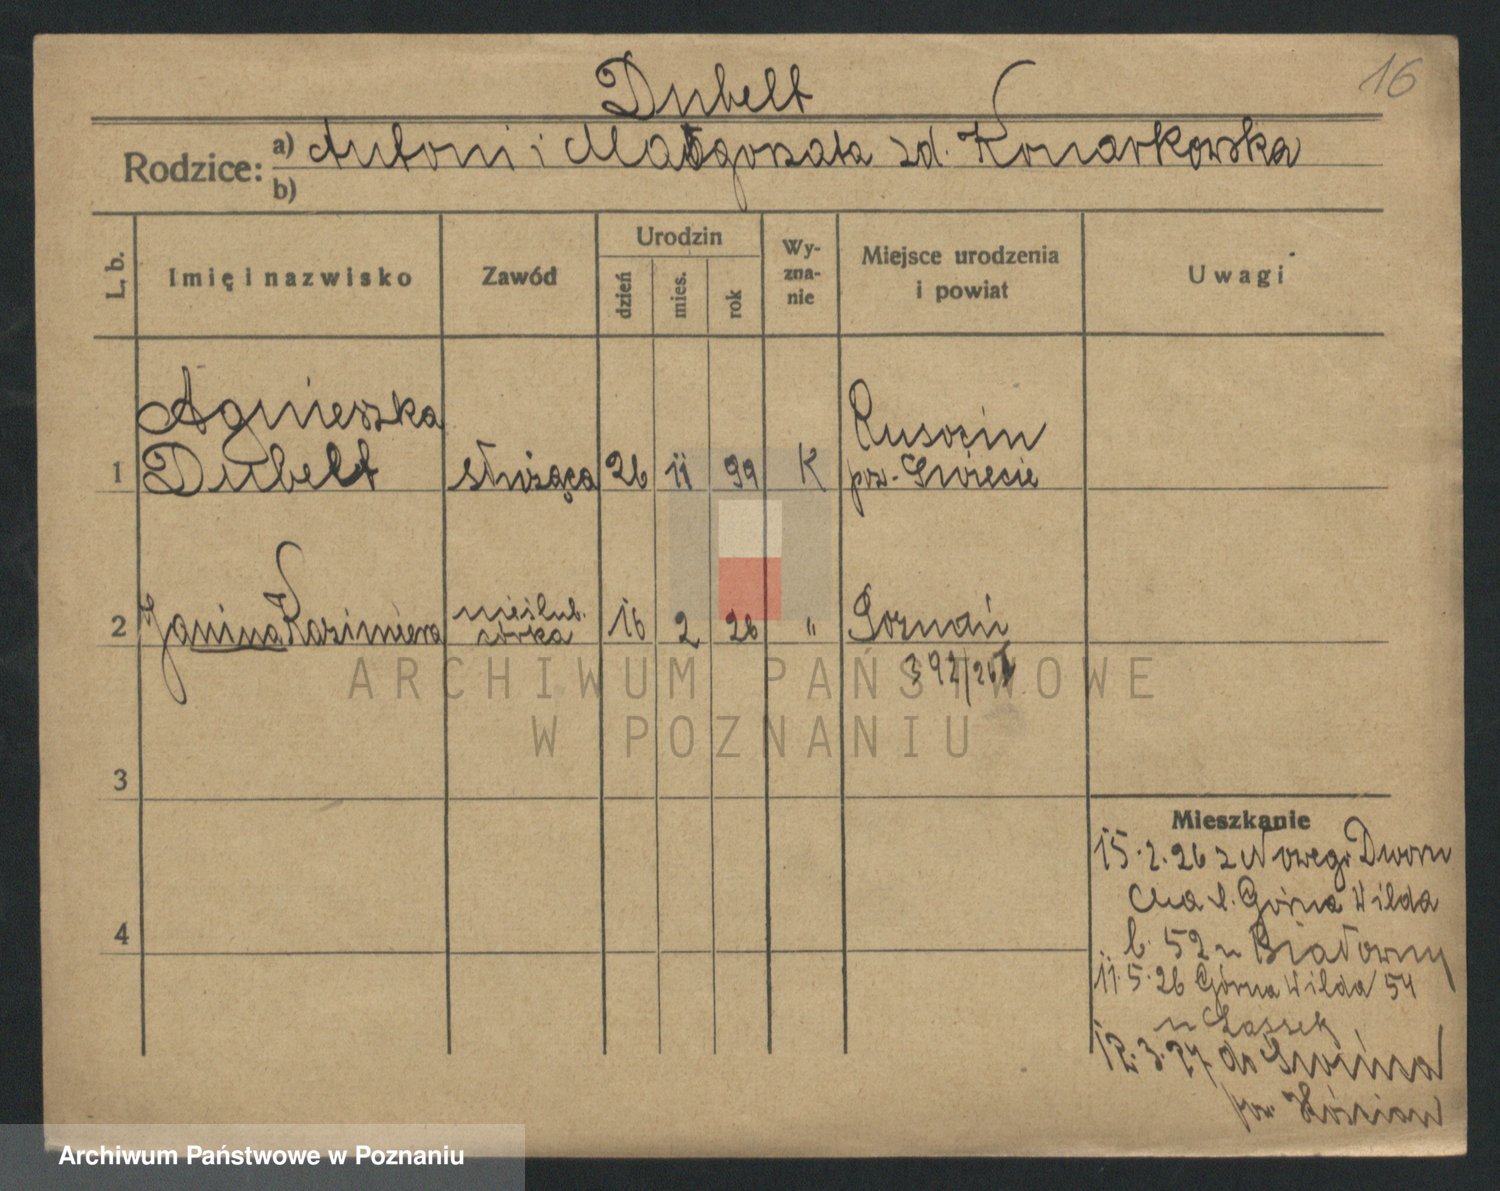 16
Dubelt
Rodzice: a) Antoni i Małgorzata zd. Konarkowska
b)
L. b.
Imię i nazwisko
Zawód
Urodzin
dzień
mies.
rok
Wy-
zna-
nie
Miejsce urodzenia
i powiat
Uwagi
1 Agnieszka
Dubelt służąca 26 11 99 K Rusocin
pow. Świecie
2 Janina Kazimiera nieślub.
córka 16 2 26 " Poznań
392/26
3
4
Mieszkanie
15.2.26 z Nowego Dworu
Górna Wilda
52 u
11.5.26 Górna Wilda 54
u
12.3.27 do
pow.
ARCHIWUM PAŃSTWOWE
W POZNANIU
Archiwum Państwowe w Poznaniu